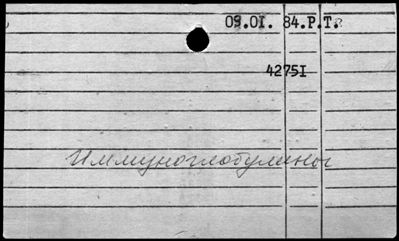 09.01. 84.Р.Т.
42751
Иммуноглобулины